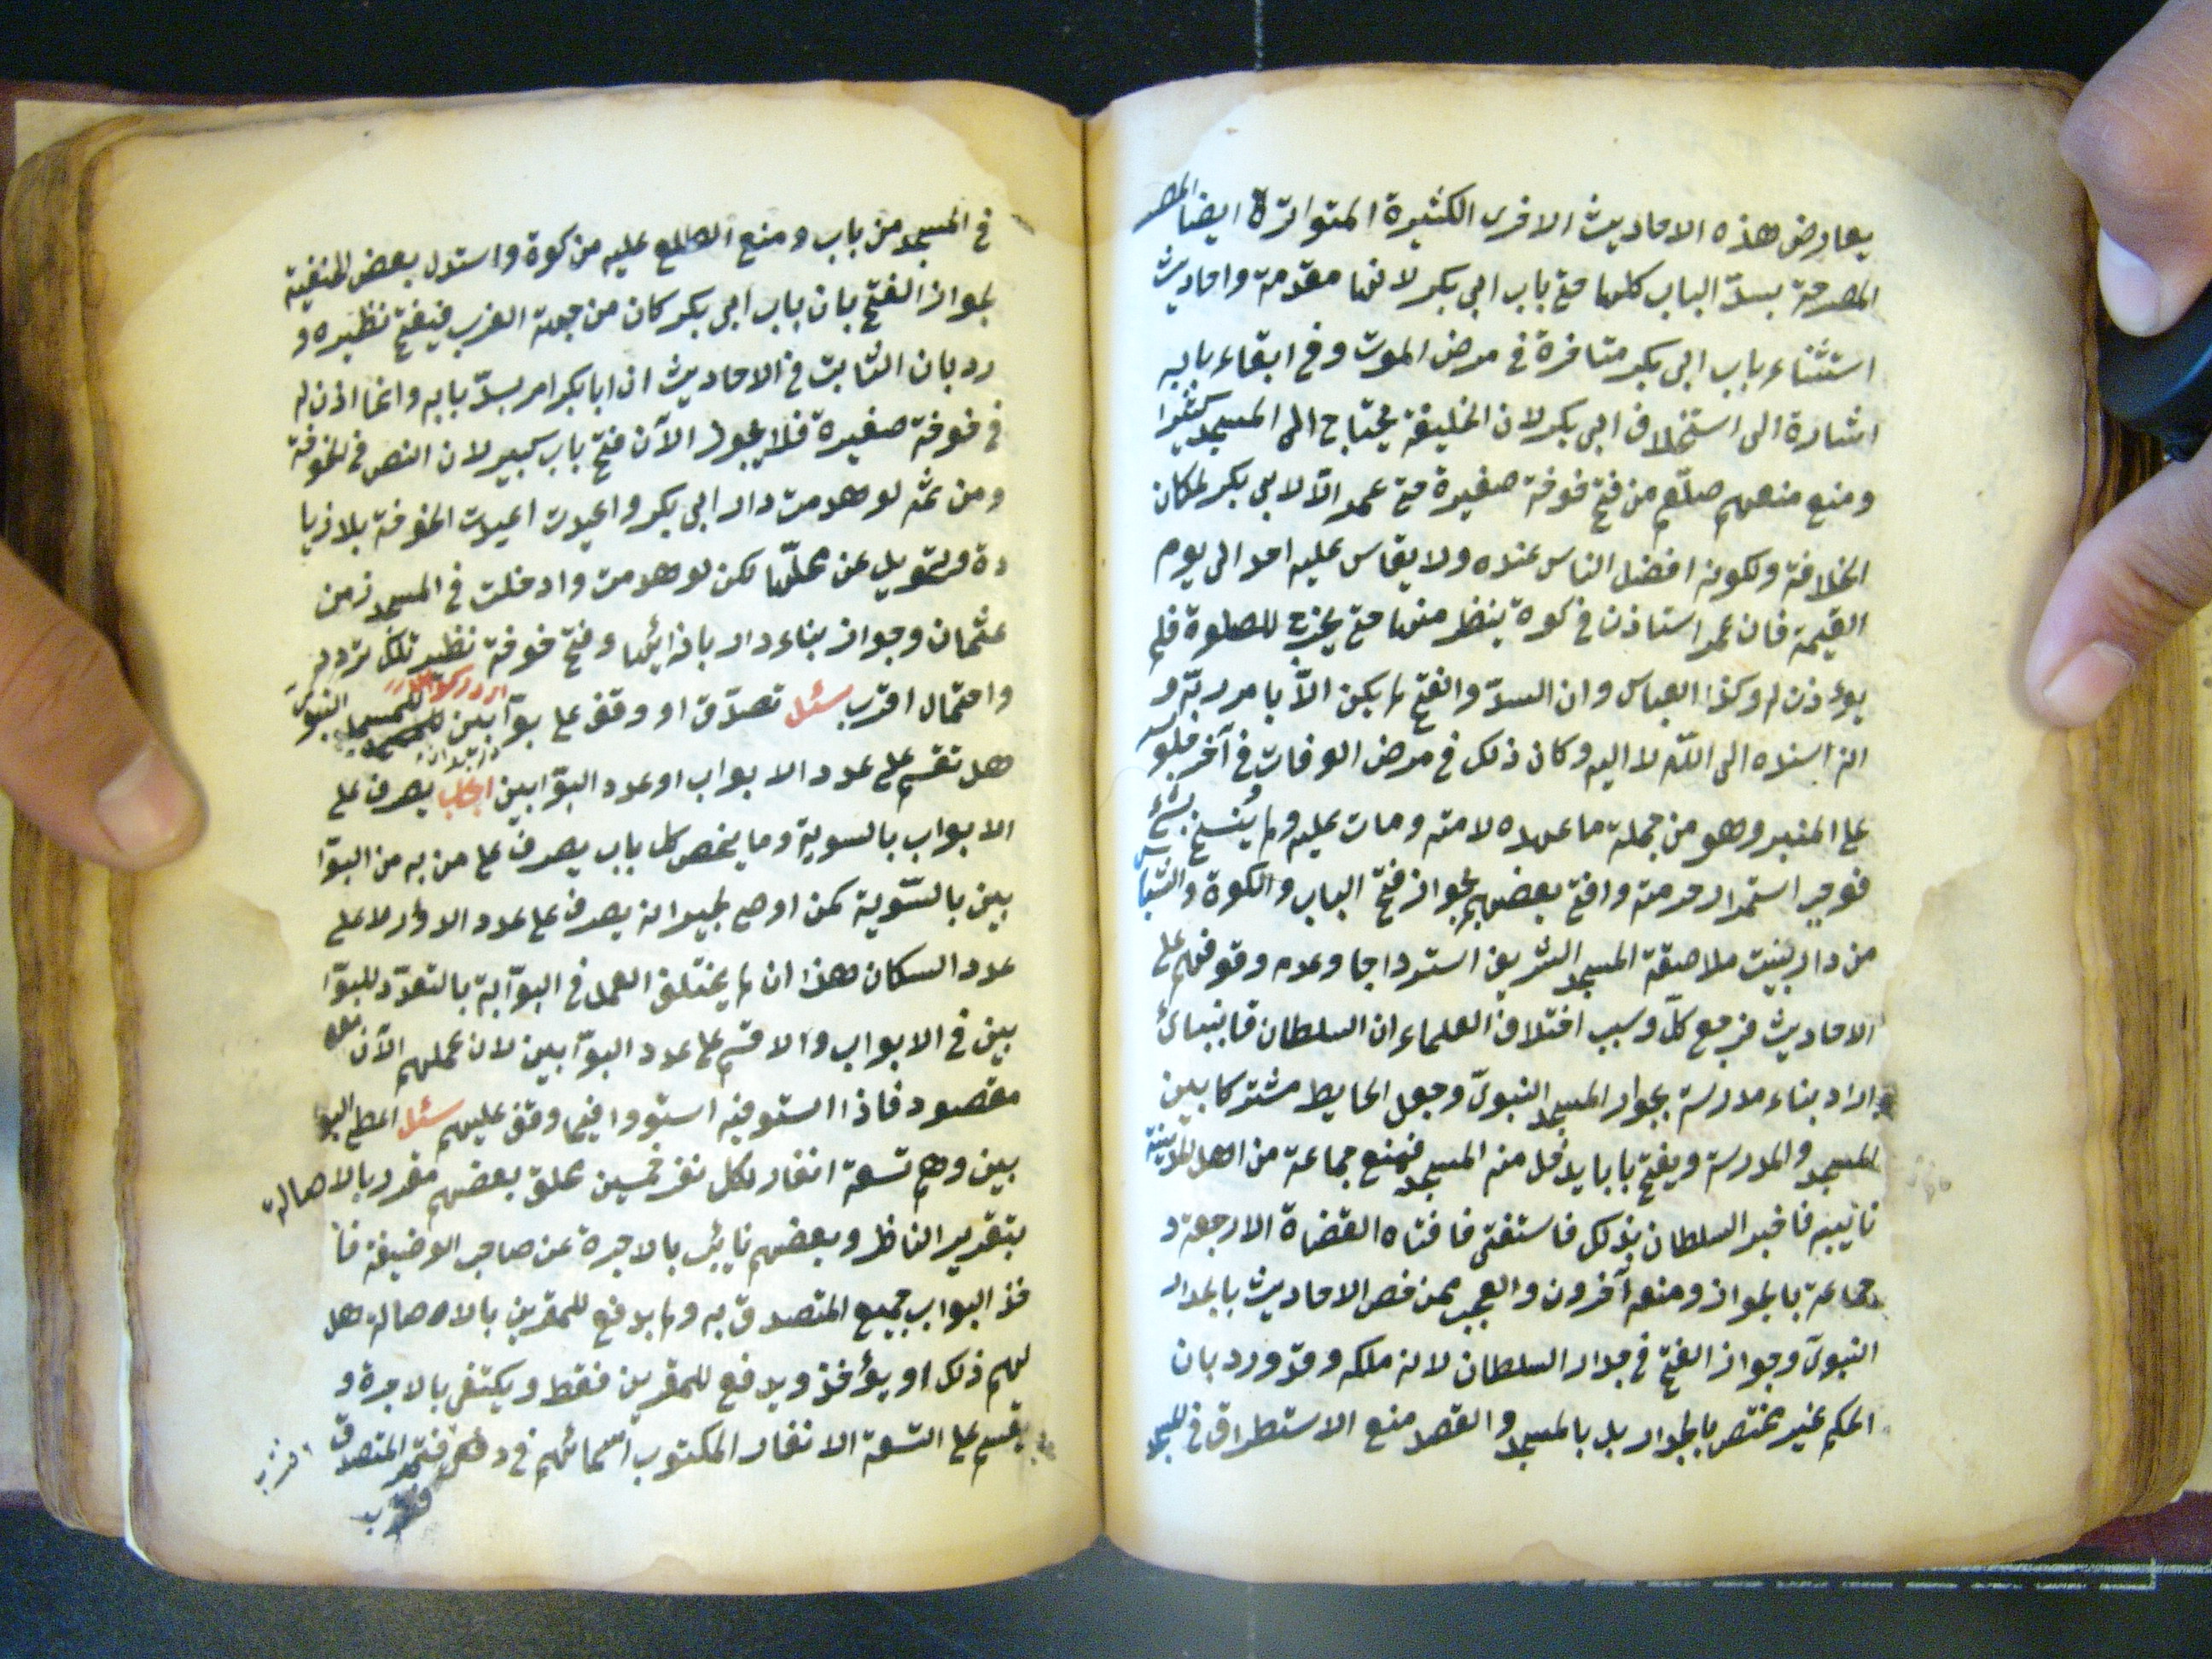 يعارض هذه الاحاديث الاخرى الكثيرة المتواترة ايضا
المصرحة بسدّ الباب كلها حتى باب ابى بكر لانها مقدمة واحاديث
استثناء باب ابى بكر متاخرة فى مرض الموت وفى ابقاء بابه
اشارة الى استخلاف ابى بكر لان الخليفة يحتاج الى المسجد كثيرا
ومنع منعهم صلعم من فتح خوخة صغيرة حتى عمر الّا لابى بكر لمكان
الخلافة ولكونه افضل الناس عنده ولا يقاس عليه احد الى يوم
القيمة فان عمر استاذن فى كوة ينظر منها حتى يخرج للصلوة فلم
يوءذن له وكذا العباس وان السدّ والفتح لم يكن الاّ بامر ربّه و
انه اسنده الى اللّه لا اليه وكان ذلك فى مرض الوفات فى آخر جلوسه
على المنبر وهو من جملة ما عهده لامته ومات عليه ولم يُنسخ بشئ
فوجب استمرار حرمته وافتى بعضهم بجواز فتح الباب والكوة والشباك
من دار بنيت ملاصقة المسجد الشريف استرواحا وعدم وقوفهم على
الاحاديث فرجع كلّ وسبب اختلاف العلماء ان السلطان قايتباى
اراد بناء مدرسة بجوار المسجد النبوىّ وجعل الحايط مشتركا بين
المسجد والمدرسة ويفتح بابا يدخل منه المسجد فمنع جماعة من اهل المدينة
نائيبه فاخبر السلطان بذلك فاستفتى فافتاه القضاة الاربعة و
جماعة بالجواز ومنعه آخرون والعجب ممن خص الاحاديث بالجدار
النبوىّ وجواز الفتح فى جدار السلطان لانه ملكه وقد ورد بان
الحكم غير مختص بالجدار بل بالمسجد والقصد منع الاستطراق فى المسجد
فى المسجد من باب ومنع الاطلع عليه من كوة واستدل بعض الحنفية
لجواز الفتح بان باب ابى بكر كان من جهة الغرب فيفتح نظيره و
رد بان الثابت فى الاحاديث ان ابا بكر امر بسدّ بابه وانما اذن له
فى خوخة صغيرة فلا يجوز الآن فتح باب كبير لان النص فى الخوخة
ومن ثمه لو هدمت دار ابى بكر واعيدت اعيدت الخوخة بلا زيا
دة وتحويل عن محلّها لكن لو هدمت وادخلت فى المسجد زمن
عثمان وجواز بناء دار بازائها وفتح خوخة نظير تلك تردد
واحتمال اقرب سئل تصدّق او وقف على بوّابين للمسجد النبوىّ
هل تقسم على عدد الابواب او عدد البوّابين اجاب يصرف على
الابواب بالسوية وما يخص كل باب يصرف على من به من البوّا
بين بالسّوية كمن اوصى لجيرانه يصرف على عدد الدور لا على
عدد السكان هذا ان لم يختلف العمل فى البوّابة بالتعدّد للبوّا
بين فى الابواب والا قسم على عدد البوّابين لان عملهم الآن
مقصود فاذا استوفيه استووا فيما وقف عليهم سئل اعطى البو
بين وهم تسعة انفار لكل نفر خمسين بعضهم مقرر بالاصالة
بتقرير الناظر وبعضهم نائب بالاجرة عن صاحب الوضيفة فا
خذ البواب جميع المتصدق به ولم يدفع للمقرين بالاصالة هل
لهم ذلك او يؤخذ ويدفع للمقرين فقط ويكتفى بالاجرة و
يقسم على التسعة الانفار المكتوب اسمائهم فى المتصدق